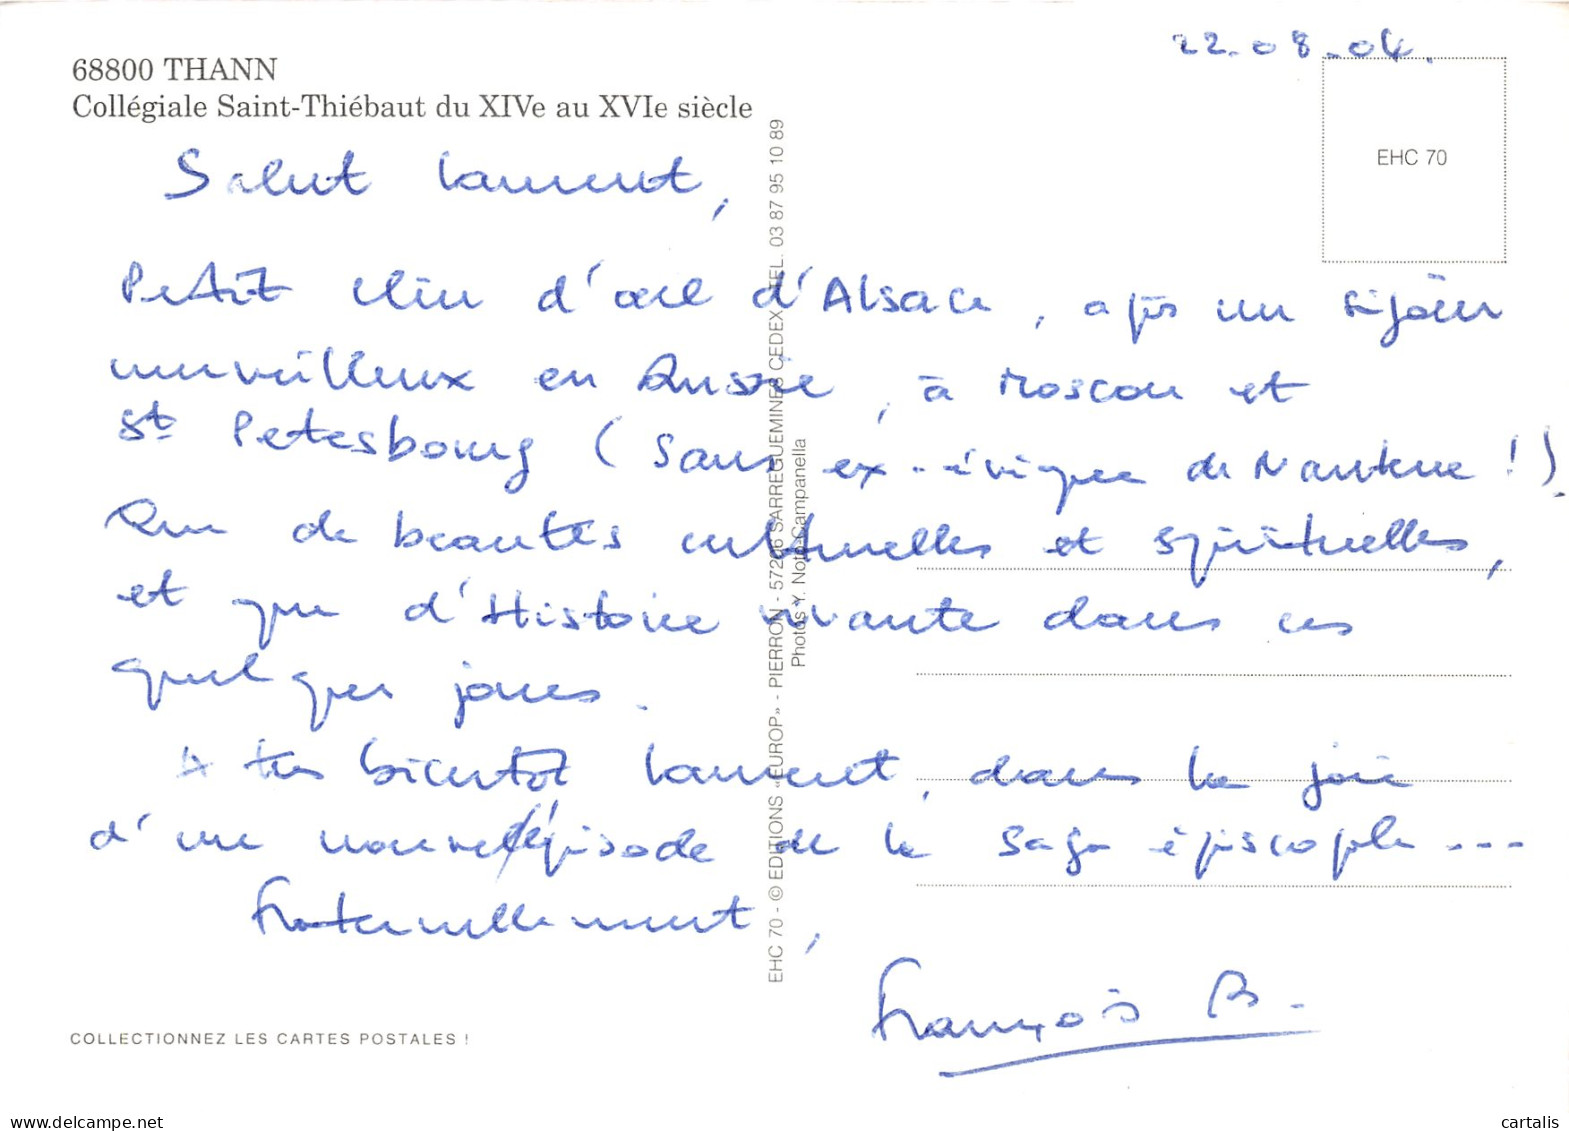 22.08.04.
68800 THANN
Collégiale Saint-Thiébaut du XIVe au XVIe siècle
EHC 70
Salut Laurent,
Petit clin d'œil d'Alsace, après un séjour
merveilleux en Russie, à Moscou et
St Petesbourg (sans ex-évêque de Nanterre !).
Que de beautés culturelles et spirituelles,
et que d'Histoire vivante dans ces
quelques jours.
A très bientôt Laurent, dans la joie
d'un nouvel épisode de la saga épiscopale ...
Fraternellement,
François B.
EHC 70 - © EDITIONS «EUROP» - PIERRON - 57206 SARREGUEMINES CEDEX TEL. 03 87 95 10 89
Photos Y. Noto-Campanella
COLLECTIONNEZ LES CARTES POSTALES !
delcampe.net
cartalis